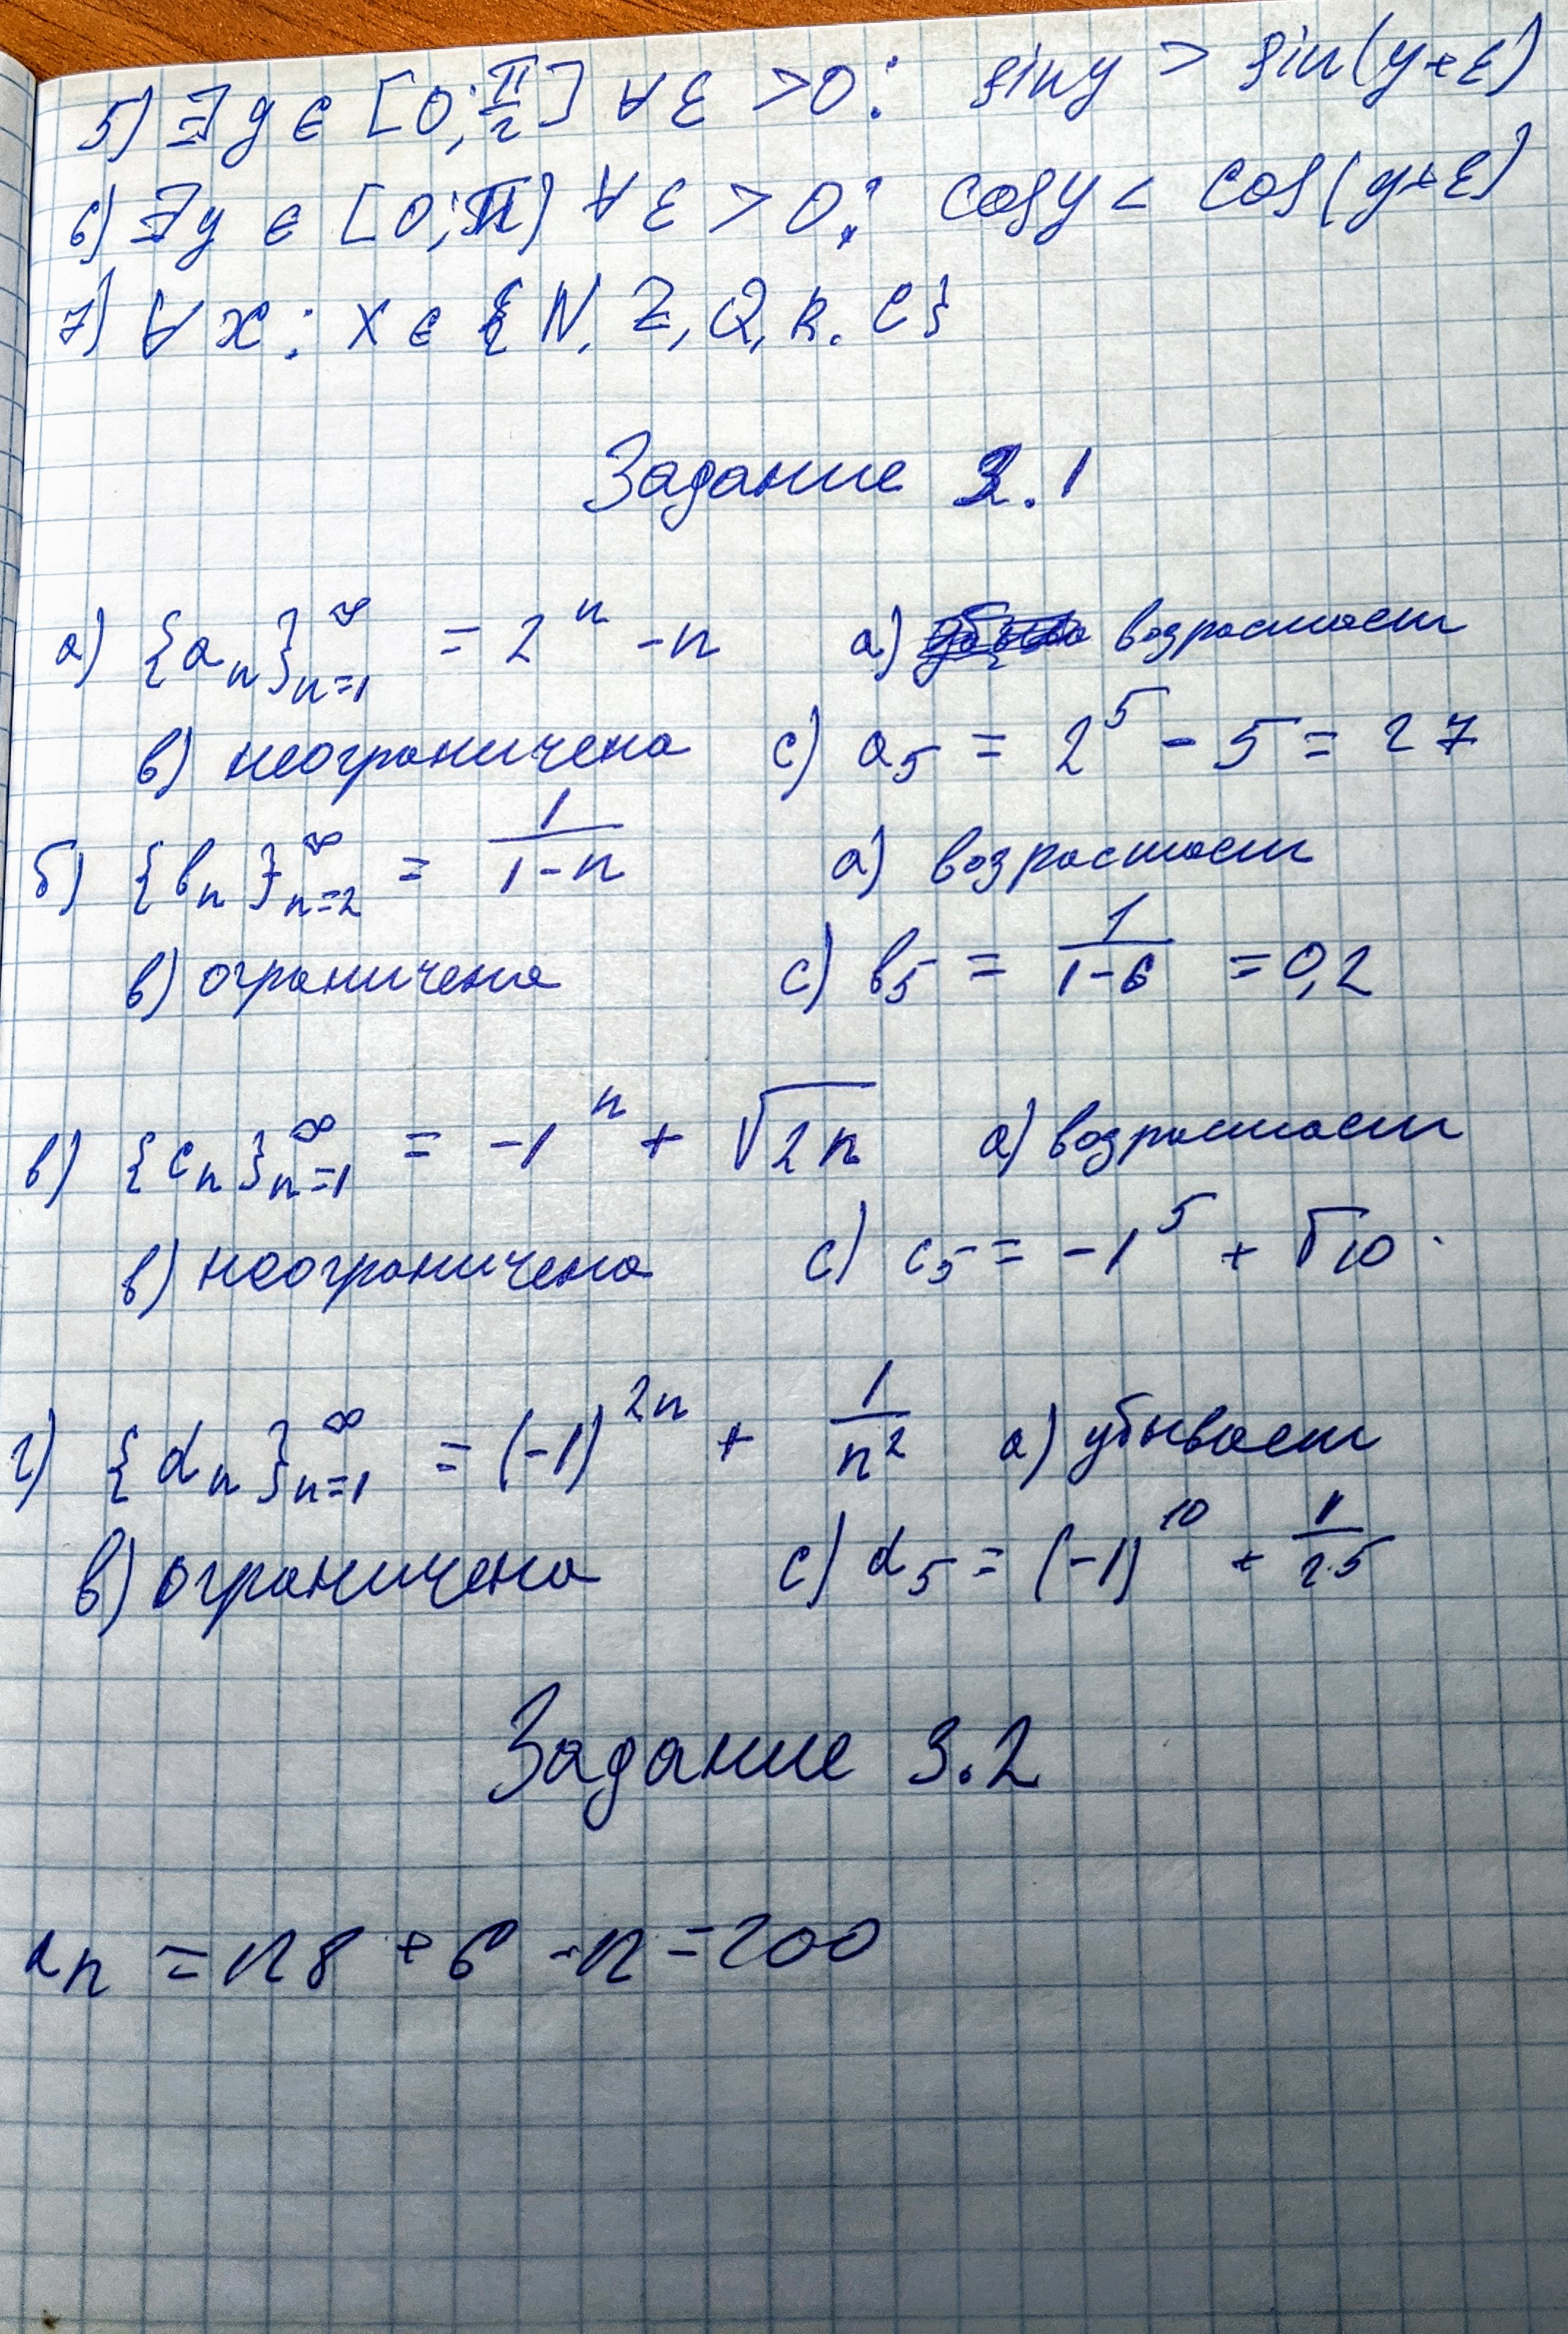 5) ∃y ∈ [0; π/2] ∀ε > 0: sin y > sin(y+ε)
6) ∃y ∈ [0; π] ∀ε > 0: cos y < cos(y+ε)
7) ∀x: x ∈ {N, Z, Q, R, C}
Задание 3.1
а) {aₙ}ₙ₌₁^∞ = 2ⁿ - n а) возрастает
в) неограничена с) a₅ = 2⁵ - 5 = 27
б) {bₙ}ₙ₌₂^∞ = 1/(1-n) а) возрастает
в) ограничена с) b₅ = 1/(1-6) = 0,2
в) {cₙ}ₙ₌₁^∞ = -1ⁿ + √(2n) а) возрастает
в) неограничена с) c₅ = -1⁵ + √10
г) {dₙ}ₙ₌₁^∞ = (-1)²ⁿ + 1/n² а) убывает
в) ограничена с) d₅ = (-1)¹⁰ + 1/25
Задание 3.2
aₙ = 128 + 6 - n = 200